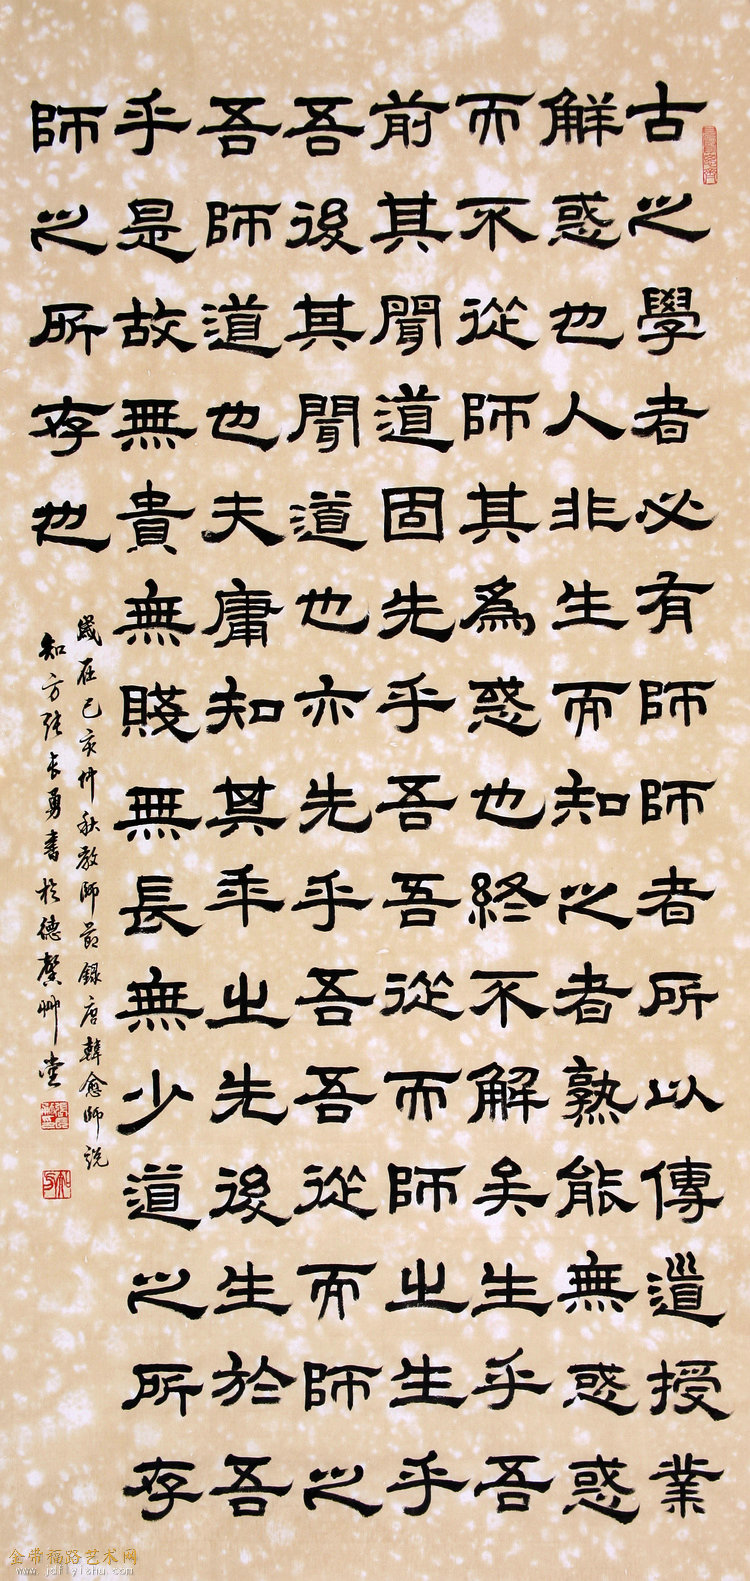 古之學者必有師師者所以傳道授業
解惑也人非生而知之者熟能無惑惑
而不從師其為惑也終不解矣生乎吾
前其聞道固先乎吾吾從而師之生乎
吾後其聞道也亦先乎吾吾從而師之
吾師道也夫庸知其年之先後生於吾
乎是故無貴無賤無長無少道之所存
師之所存也
歲在己亥仲秋教師節錄唐韓愈師說
知方張長勇書於德馨艸堂
金带福路艺术网
www.jdflyizhu.com